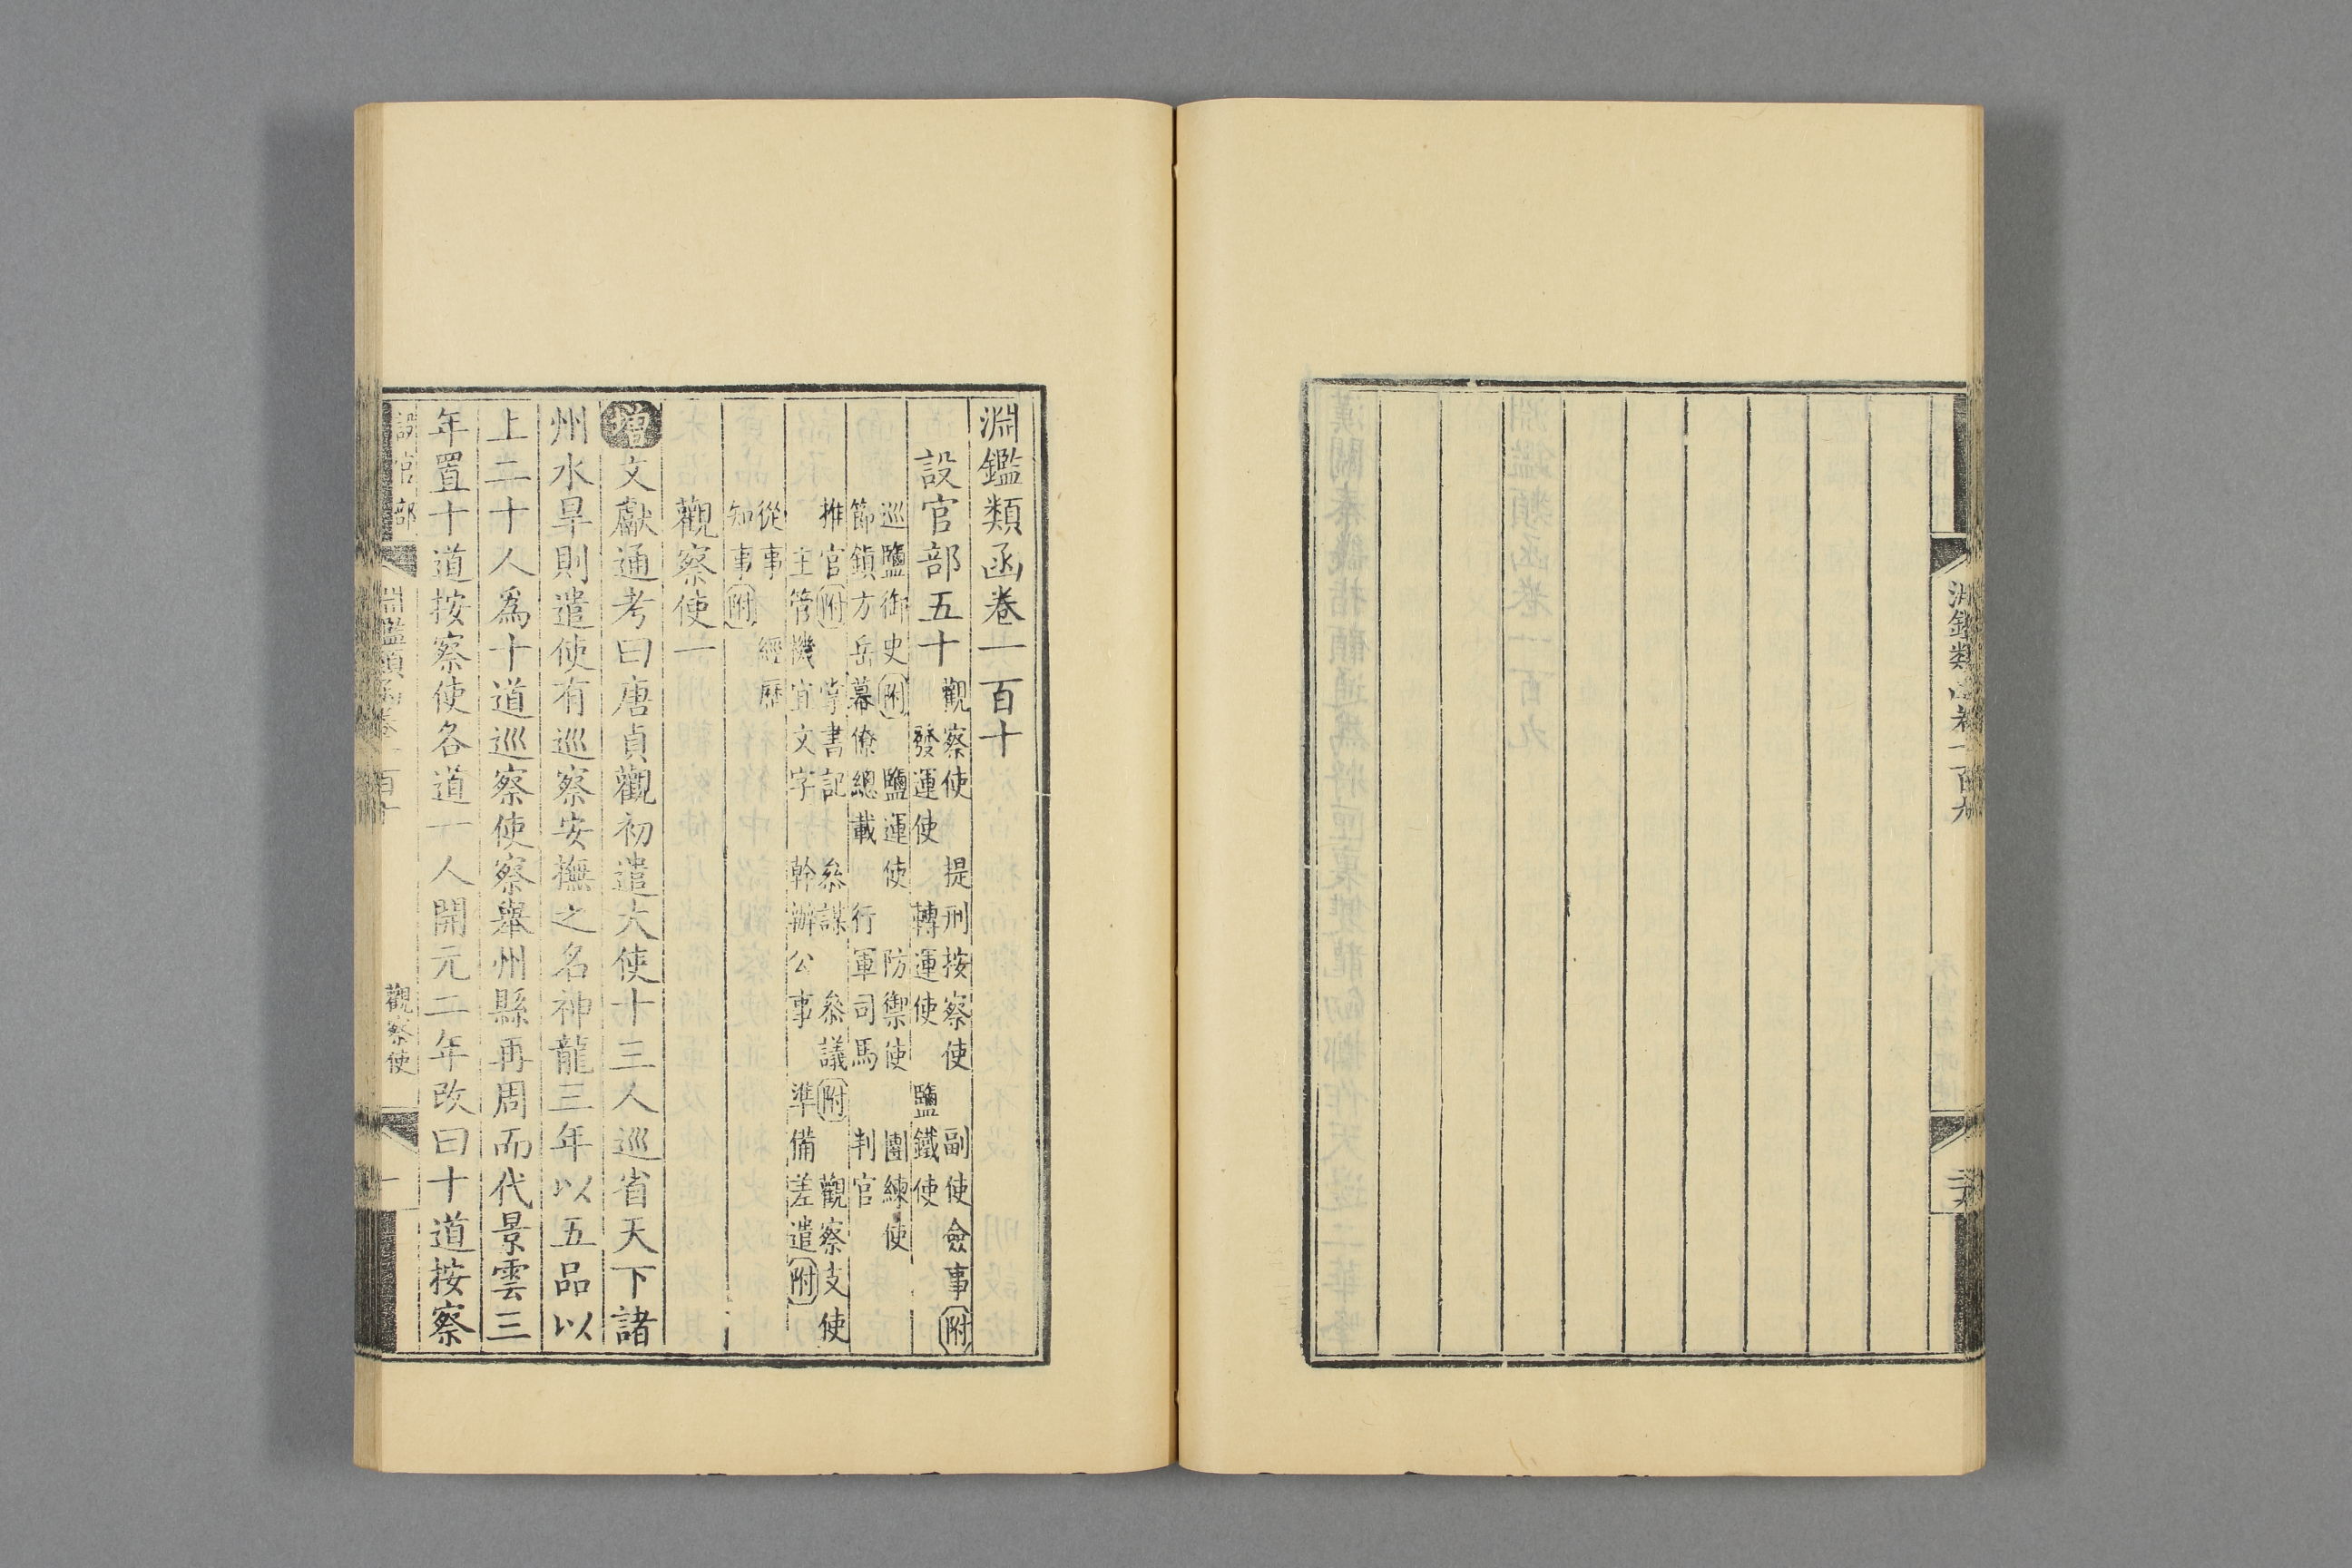 淵鑑類函卷一百九
淵鑑類函卷一百十
設官部五十
觀察使 提刑按察使 副使僉事附
發運使 轉運使 鹽鐵使
巡鹽御史附 鹽運使 防禦使 團練使
節鎮方岳幕僚總載 行軍司馬 判官
推官附 掌書記 叅謀 叅議附 觀察支使
主管機宜文字 幹辦公事 準備差遣附
從事 經歷
知事附
觀察使一
增文獻通考曰唐貞觀初遣大使十三人巡省天下諸
州水旱則遣使有巡察安撫之名神龍三年以五品以
上二十人爲十道巡察使察舉州縣再周而代景雲三
年置十道按察使各道一人開元二年改曰十道按察
設官部 淵鑑類函卷一百十 觀察使 一